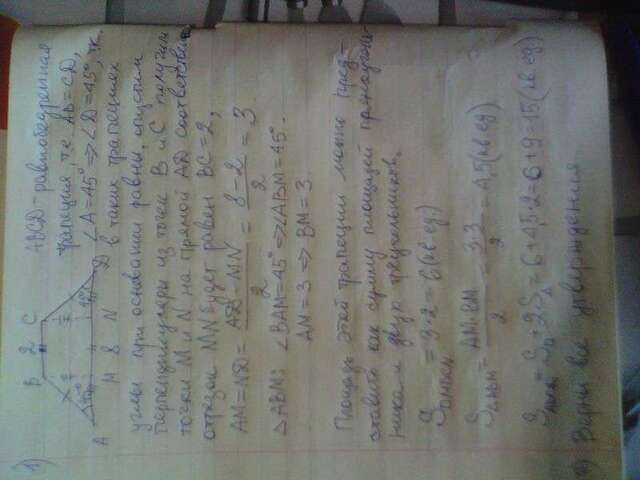 1)
B 2 C
A M 8 N D
45° 45°
ABCD - равнобедренная
трапеция, т.е. AB = CD,
∠A = 45° => ∠D = 45°, т.к.
в таких трапециях
углы при основании равны. опустим
перпендикуляры из точек B и C получим
точки M и N на прямой AD соответственно
отрезок MN будет равен BC = 2,
AM = ND = (AD - MN)/2 = (8 - 2)/2 = 3
△ABM: ∠BAM = 45° => ∠ABM = 45°.
AM = 3 => BM = 3.
Площадь этой трапеции можно пред-
ставить как сумму площадей прямоуголь-
ника и двух треугольников.
S = 3·2 = 6 (кв ед)
S△ABM = (AM·BM)/2 = (3·3)/2 = 4,5 (кв ед)
S = S + 2S△ = 6 + 4,5·2 = 6 + 9 = 15 (кв ед)
Верны все утверждения